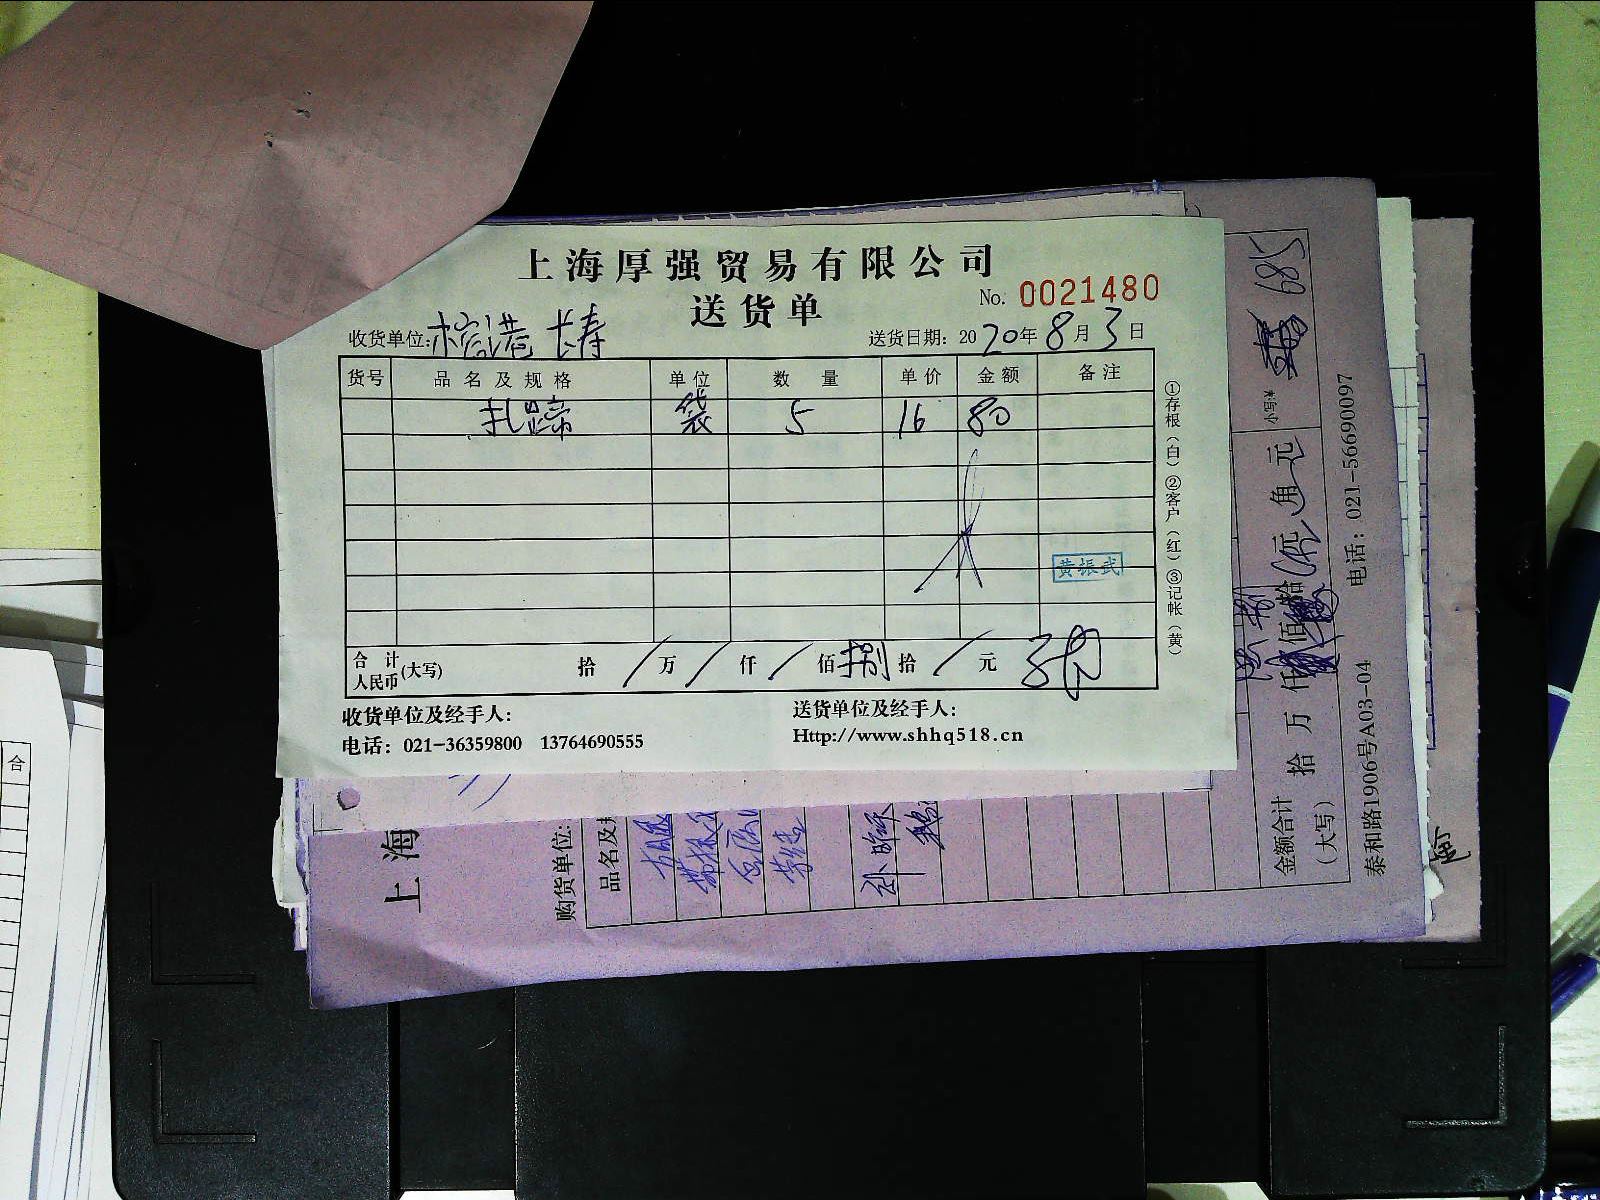 上海厚强贸易有限公司
送货单
No. 0021480
收货单位: 榕港 长寿
送货日期: 2020年8月3日
货号 品名及规格 单位 数量 单价 金额 备注
扎蹄 袋 5 16 80
黄振武
合计人民币(大写) 拾/万/仟/佰捌拾/元
收货单位及经手人:
送货单位及经手人:
电话: 021-36359800 13764690555
Http://www.shhq518.cn
①存根(白)②客户(红)③记帐(黄)
上海
购货单位:
品名及规
金额合计(大写) 拾 万 仟 佰 拾 元 角 元
小写:¥ 685
泰和路1906号A03-04 电话: 021-56690097
合